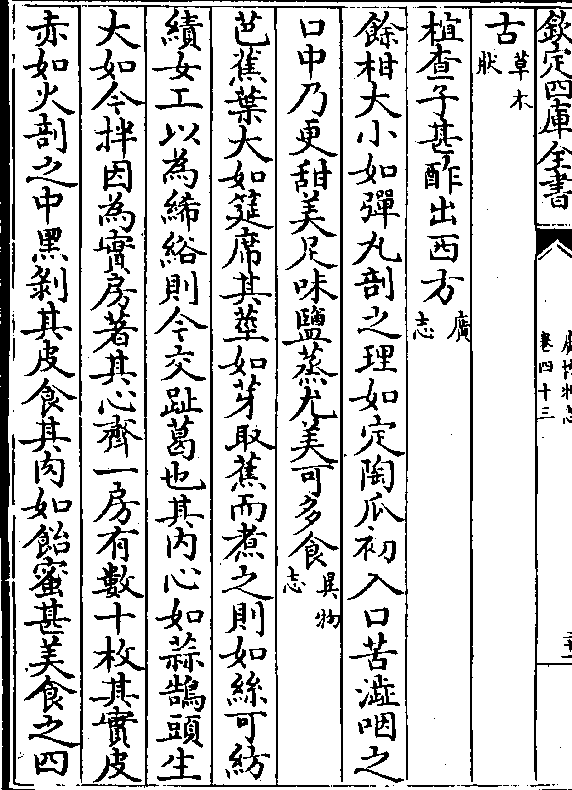 欽定四庫全書
廣博物志
卷四十三
古草木狀
樝查子甚酢出西方廣志
餘柑大小如彈丸剖之理如定陶瓜初入口苦澁咽之
口中乃更甜美足味鹽蒸尤美可多食異物志
芭蕉葉大如筵席其莖如芽取蕉而煮之則如絲可紡
績女工以為絺綌則今交趾葛也其内心如蒜鵠頭生
大如今拌因為實房著其心齊一房有數十枚其實皮
赤如火剖之中黑剝其皮食其肉如飴蜜甚美食之四